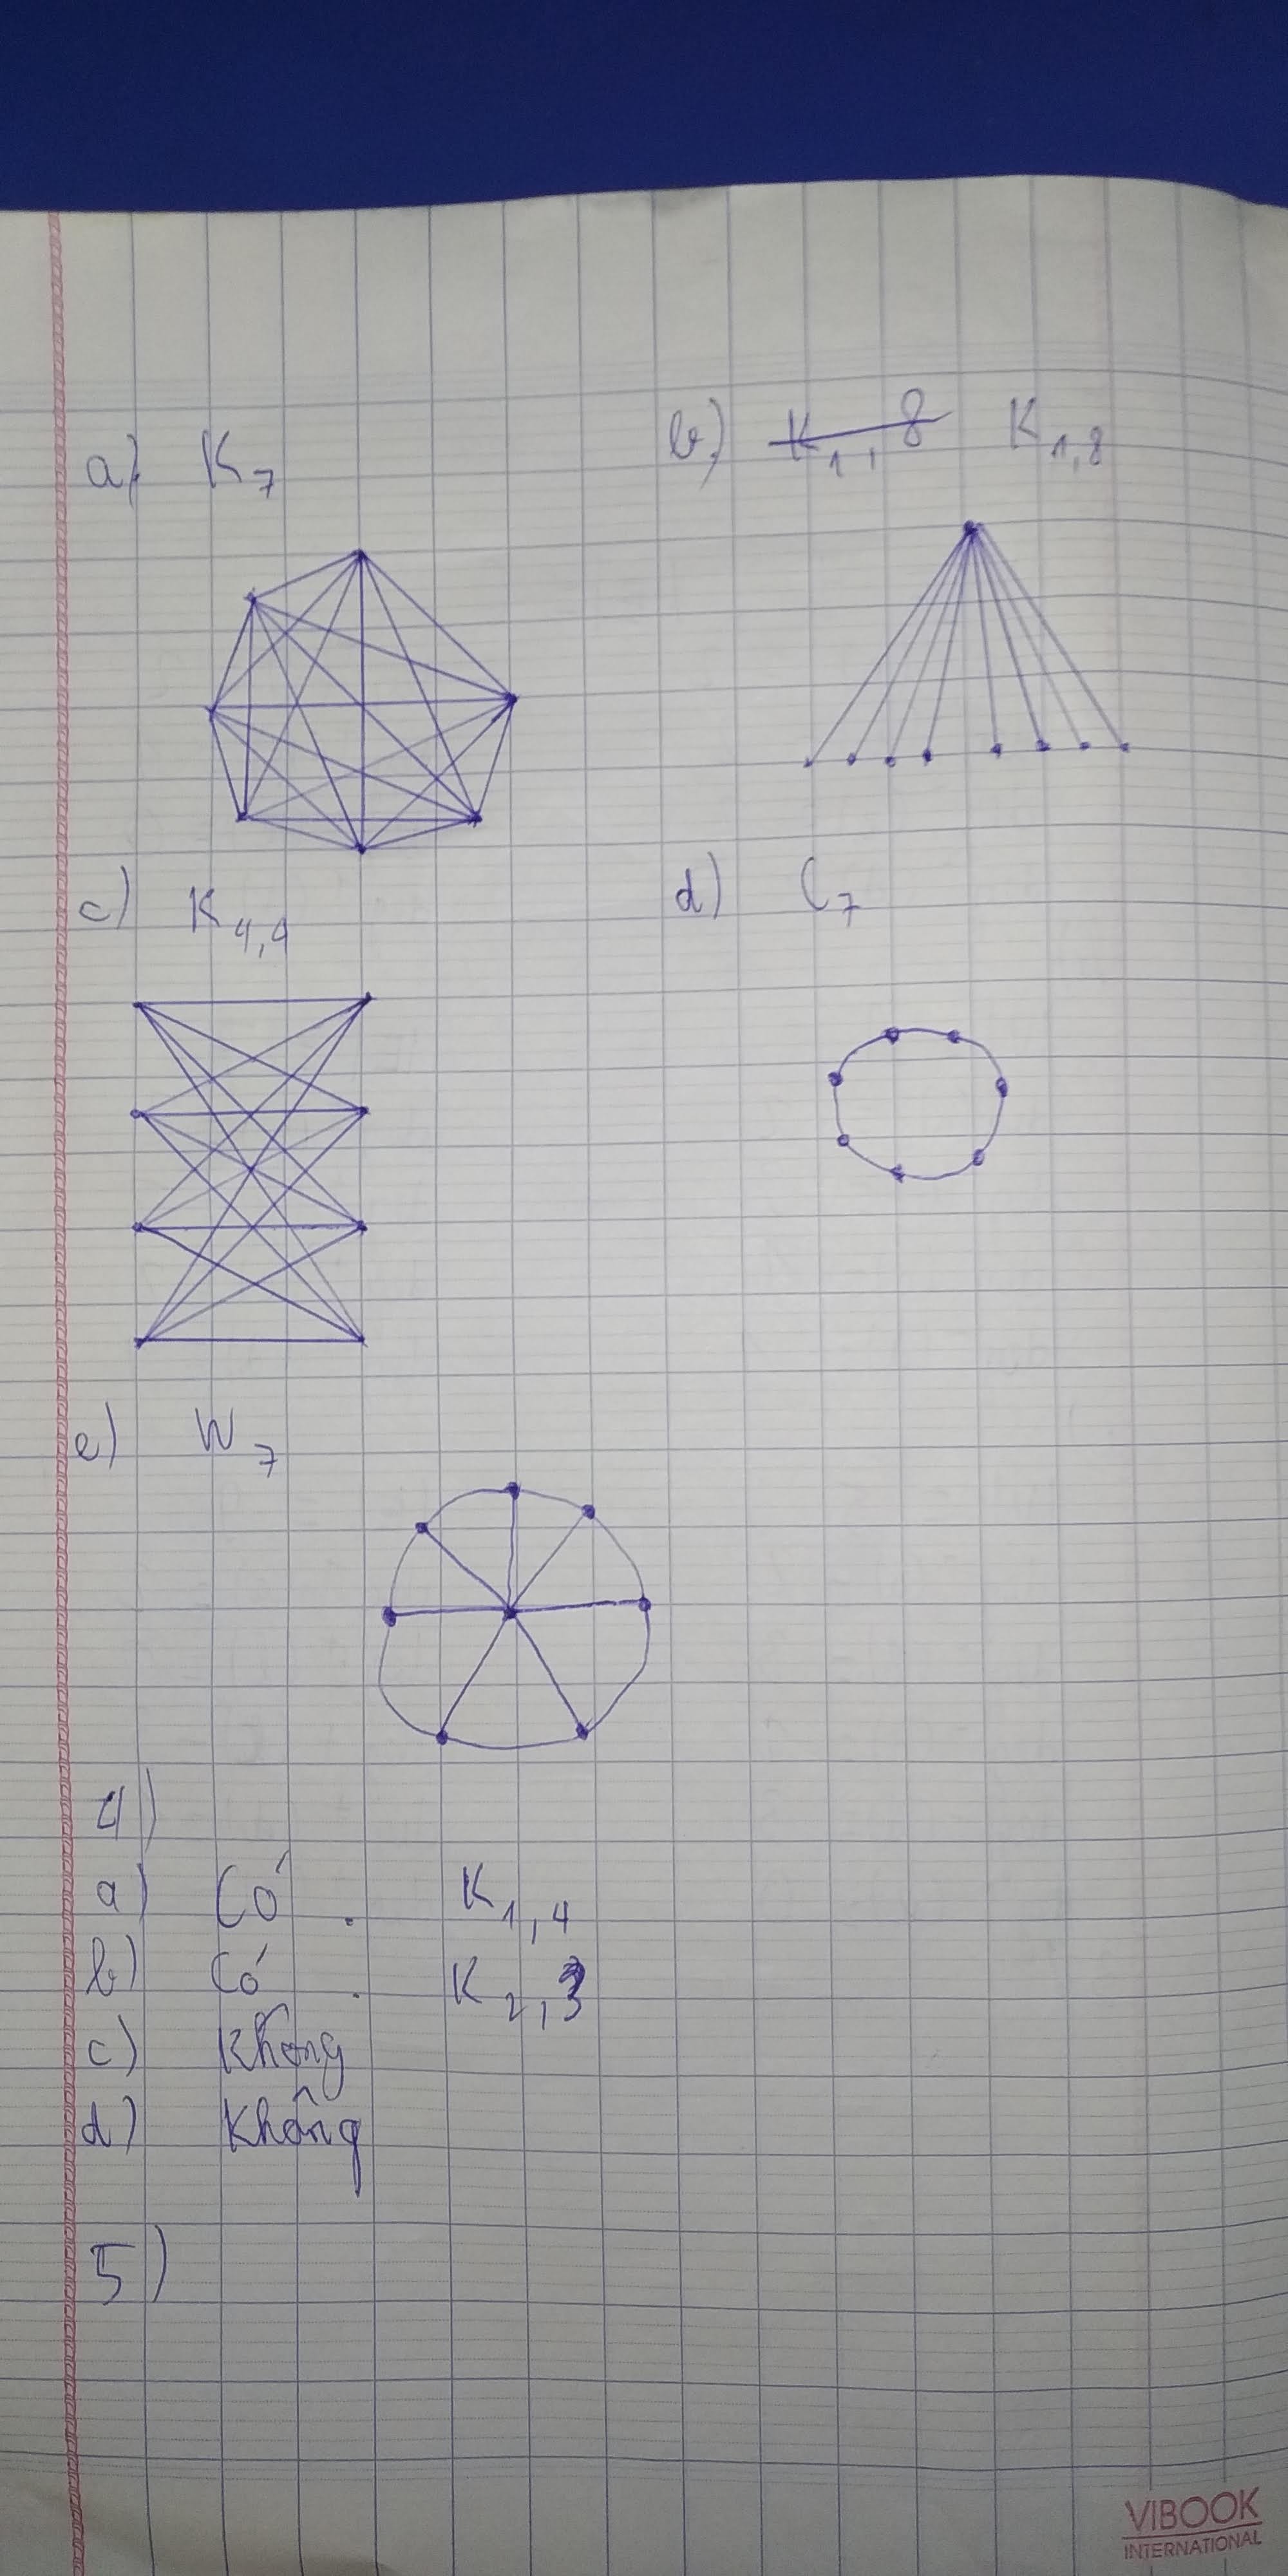 a) K7
b) K1,8 K1,8
c) K4,4
d) C7
e) W7
4)
a) Có. K1,4
b) Có. K2,3
c) Không
d) Không
5)
VIBOOK
INTERNATIONAL